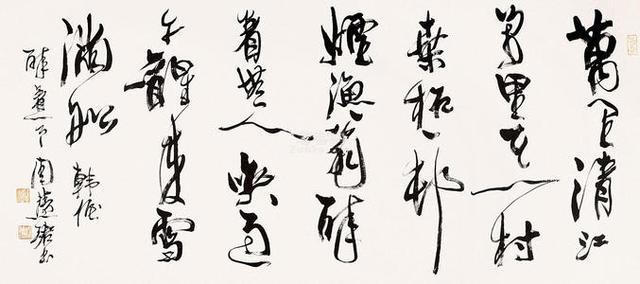 萬里清江
萬里天一村
桑柘一邨
煙漁翁醉
着無人喚過
午醒來雪
滿船
韓偓
醉着